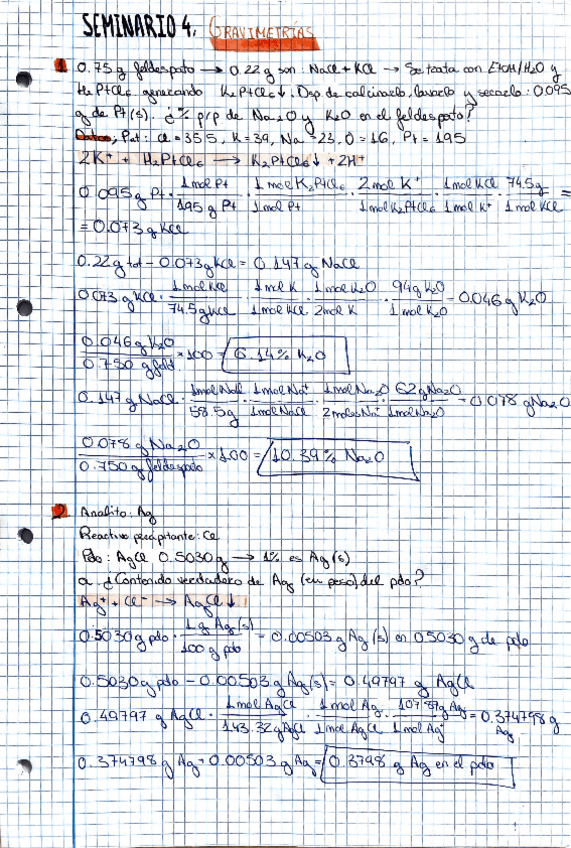 SEMINARIO 4. GRAVIMETRÍAS
1 0.75 g feldespato → 0.22 g son: NaCl + KCl → Se trata con EtOH/H2O y
H2PtCl6 generando K2PtCl6↓. Dsp de calcinarlo, lavarlo y secarlo: 0.095
g de Pt(s). ¿% p/p de Na2O y K2O en el feldespato?
Datos; Pat: Cl = 35.5, K = 39, Na = 23, O = 16, Pt = 195
2K+ + H2PtCl6 → K2PtCl6↓ + 2H+
0.095 g Pt · 1 mol Pt / 195 g Pt · 1 mol K2PtCl6 / 1 mol Pt · 2 mol K+ / 1 mol K2PtCl6 · 1 mol KCl / 1 mol K+ · 74.5 g / 1 mol KCl =
= 0.073 g KCl
0.22 g tot - 0.073 g KCl = 0.147 g NaCl
0.073 g KCl · 1 mol KCl / 74.5 g KCl · 1 mol K / 1 mol KCl · 1 mol K2O / 2 mol K · 94 g K2O / 1 mol K2O = 0.046 g K2O
0.046 g K2O / 0.750 g feld × 100 = 6.14% K2O
0.147 g NaCl · 1 mol NaCl / 58.5 g · 1 mol Na+ / 1 mol NaCl · 1 mol Na2O / 2 moles Na+ · 62 g Na2O / 1 mol Na2O = 0.078 g Na2O
0.078 g Na2O / 0.750 g feldespato × 100 = 10.39% Na2O
2 Analito: Ag
Reactivo precipitante: Cl
Pdo: AgCl 0.5030 g → 1% es Ag(s)
a. ¿Contenido verdadero de Ag (en peso) del pdo?
Ag+ + Cl- → AgCl↓
0.5030 g pdo · 1 g Ag(s) / 100 g pdo = 0.00503 g Ag(s) en 0.5030 g de pdo
0.5030 g pdo - 0.00503 g Ag(s) = 0.49797 g AgCl
0.49797 g AgCl · 1 mol AgCl / 143.32 g AgCl · 1 mol Ag / 1 mol AgCl · 107.87 g Ag / 1 mol Ag = 0.374798 g Ag
0.374798 g Ag + 0.00503 g Ag = 0.3798 g Ag en el pdo